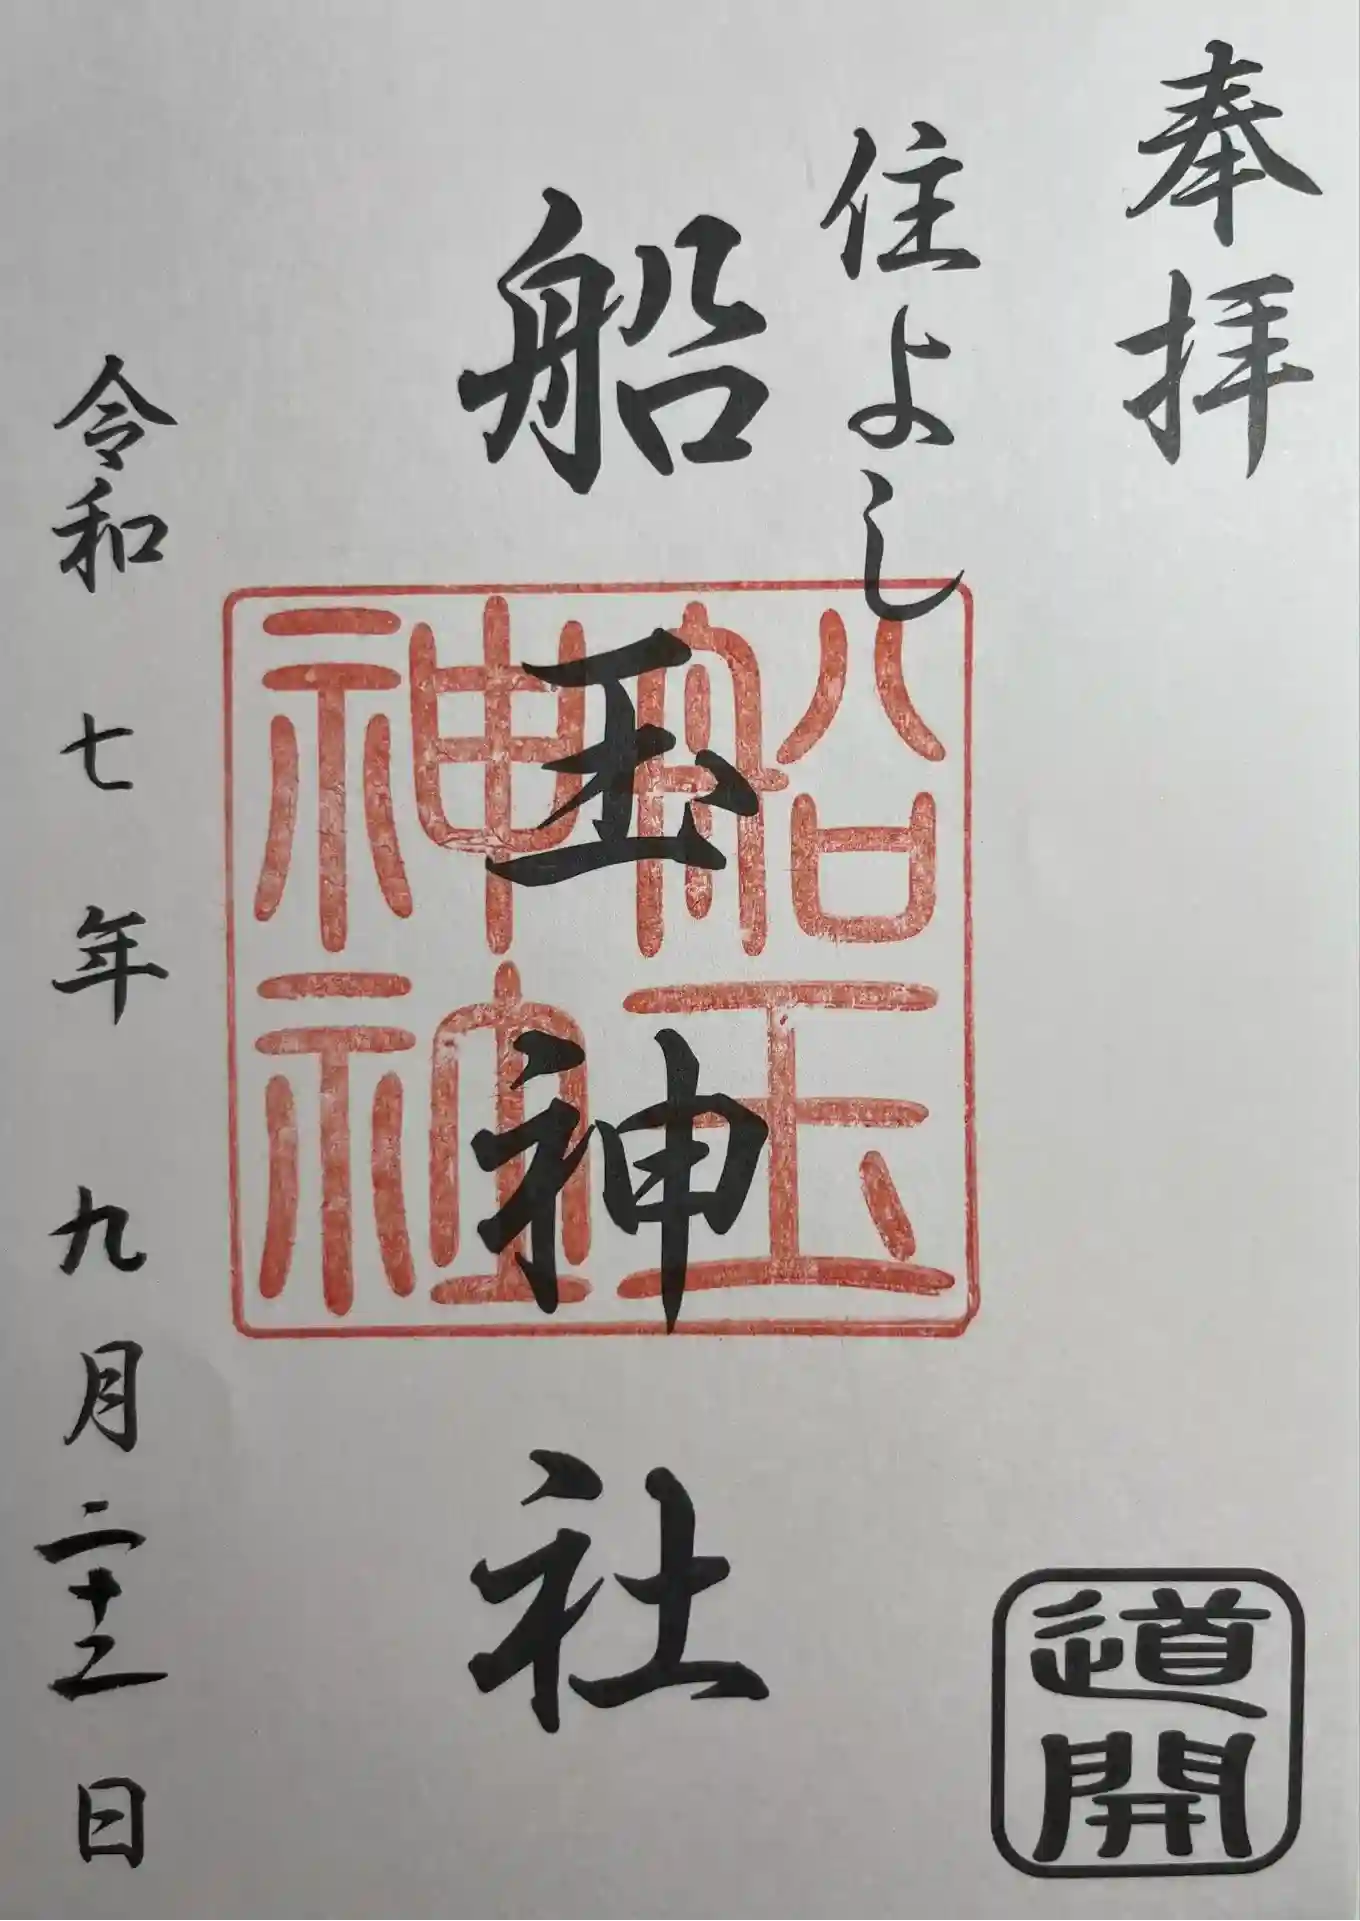 奉拝
道開
住よし
船玉神社
船玉
神社
令和七年九月二十二日